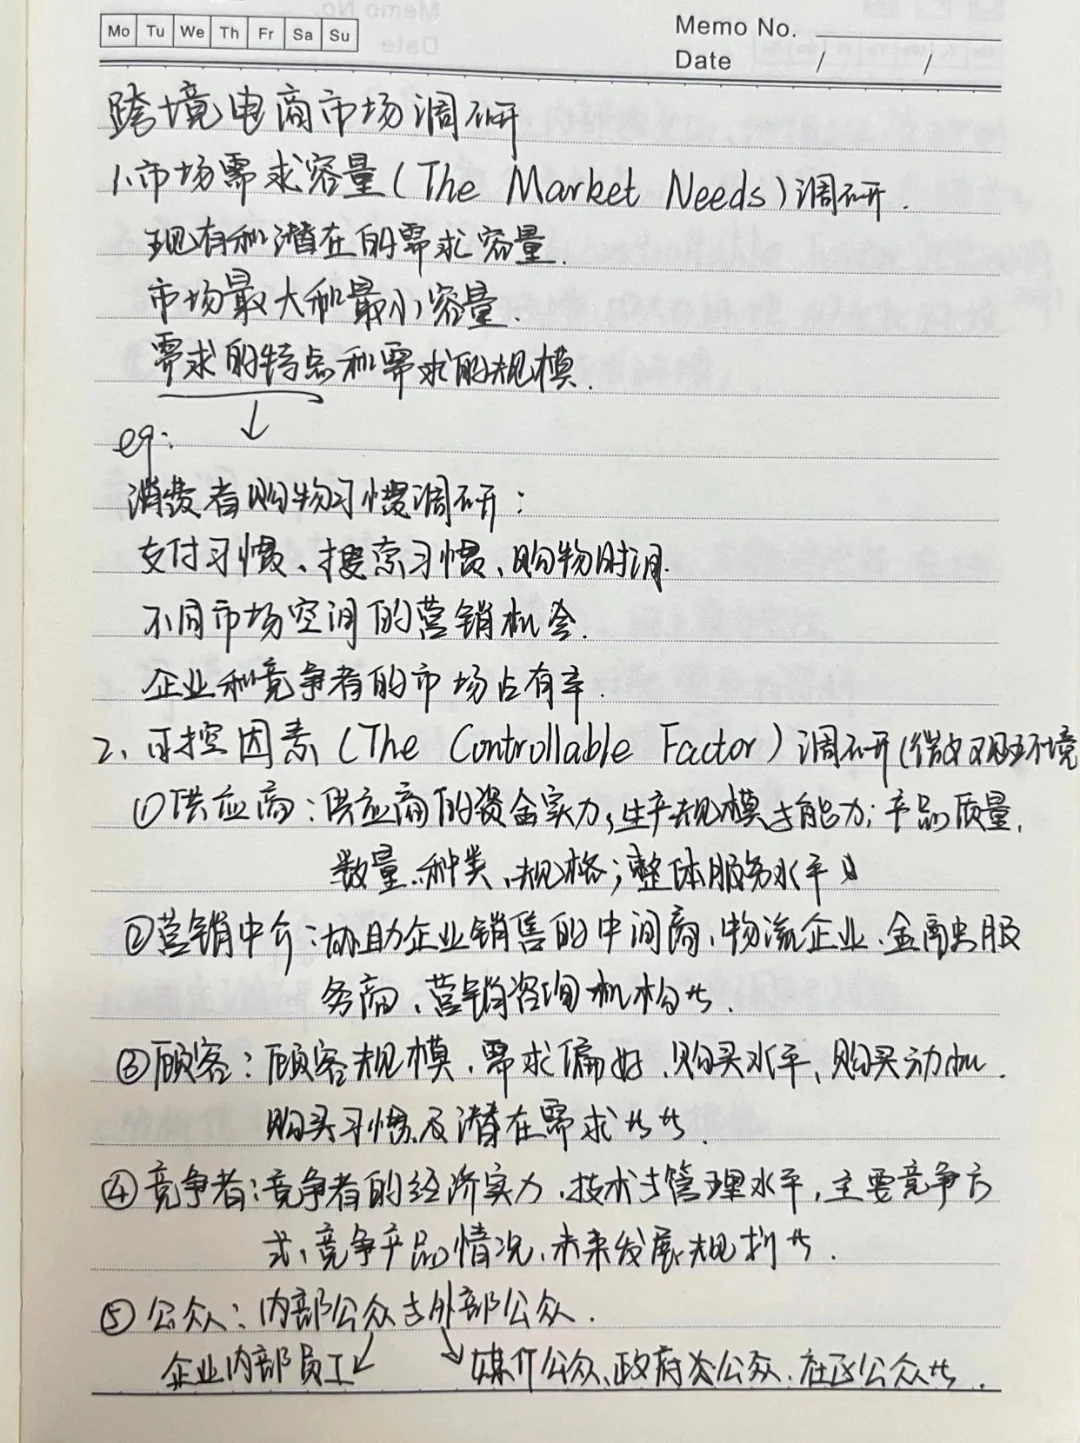 Mo Tu We Th Fr Sa Su
Memo No.
Date / /
跨境电商市场调研
1.市场需求容量(The Market Needs)调研.
现有和潜在的需求容量.
市场最大和最小容量.
需求的特点和需求的规模.
eg:
消费者购物习惯调研:
支付习惯、搜索习惯、购物时间.
不同市场空间的营销机会.
企业和竞争者的市场占有率.
2、可控因素(The Controllable Factor)调研(微观环境
①供应商:供应商的资金实力;生产规模与能力;产品质量、
数量、种类、规格;整体服务水平
②营销中介:协助企业销售的中间商、物流企业、金融服
务商、营销咨询机构等.
③顾客:顾客规模、需求偏好、购买水平、购买动机.
购买习惯及潜在需求等等.
④竞争者:竞争者的经济实力、技术与管理水平,主要竞争方
式、竞争产品情况、未来发展规划等.
⑤公众:内部公众与外部公众.
企业内部员工 媒介公众、政府类公众、社区公众等.